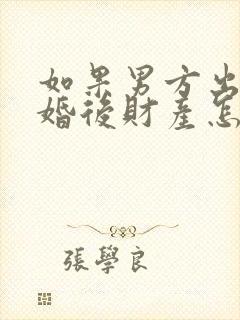 如果男方出
婚後財產怎
張學良